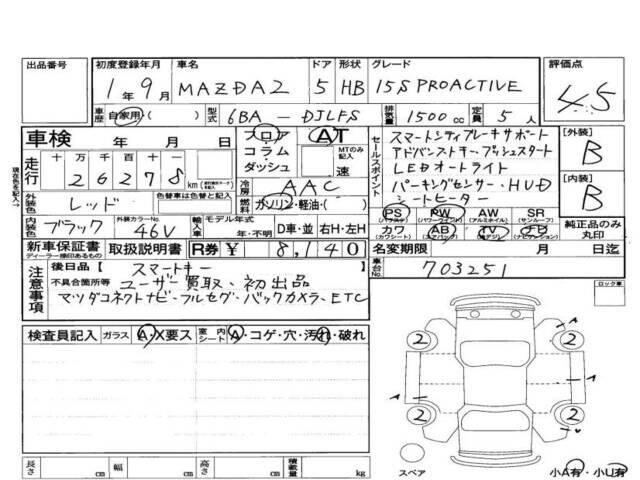 出品番号
初度登録年月 1年9月
車名 MAZDA2
ドア 5
形状 HB
グレード 15S PROACTIVE
評価点 4.5
車歴 自家用・( )
型式 6BA - DJLFS
排気量 1500 cc
定員 5 人
車検 年 月 日
シフト フロア コラム ダッシュ
AT
MTのみ記入 速
セールスポイント
スマートシティブレーキサポート
アドバンストキー・プッシュスタート
LEDオートライト
パーキングセンサー・HUD
シートヒーター
[外装] B
[内装] B
走行 十 万 千 百 十
2 6 2 7 8 km
現在色を記入→
外装色 レッド
色替車は色替と記入
冷房 AAC
燃料 ガソリン・軽油・( )
PS (パワステ) PW (パワーウィンドウ) AW (アルミホイル) SR (サンルーフ)
カワ (カワシート) AB (エアバッグ) TV (地デジ) ナビ
純正品のみ丸印
内装色 ブラック
外装カラーNo. 46V
輸入車 モデル年式 年・不明
D車・並 右H・左H
新車保証書 ディーラー捺印あるもの
取扱説明書
R券 ¥ 8,140
名変期限 月 日迄
車台No. 703251
注意事項
後日品【 スマートキー
不具合箇所等 ユーザー買取、初出品
マツダコネクトナビ・フルセグ・バックカメラ・ETC
ロック車
検査員記入 ガラス A・X要ス 室内シート A・コゲ・穴・汚れ・破れ
2 2
A A
2 2
スペア
小A有・小U有
長さ cm 幅 cm 高さ cm 積載量 kg